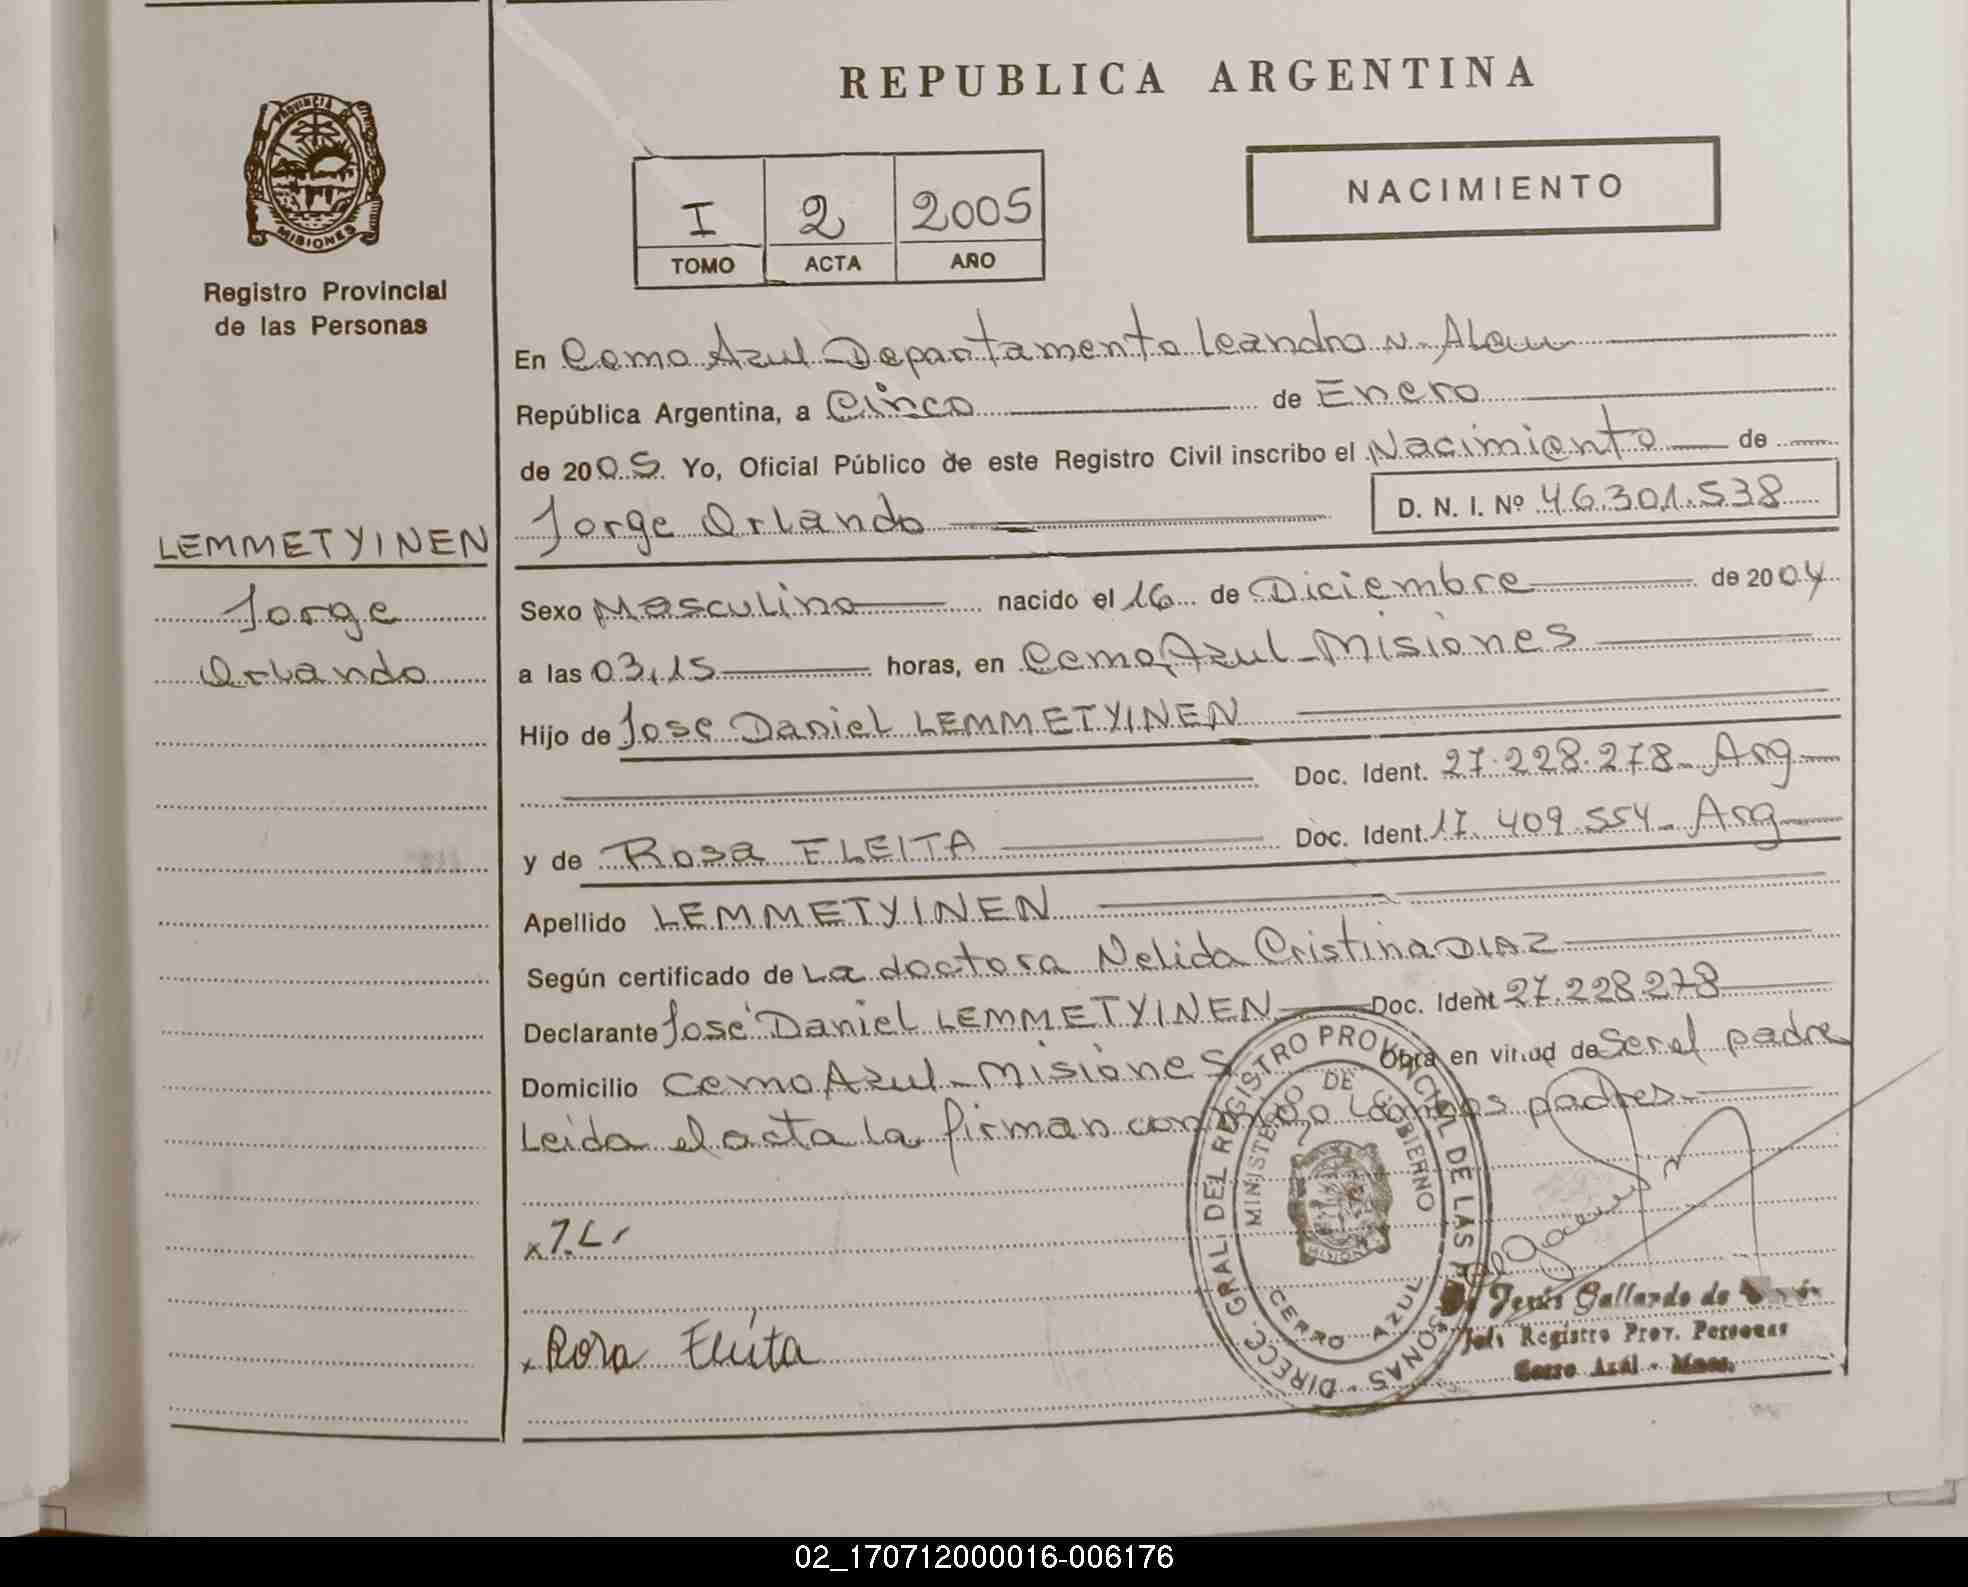 REPUBLICA ARGENTINA
PROVINCIA DE
MISIONES
Registro Provincial
de las Personas
I 2 2005
TOMO ACTA AÑO
NACIMIENTO
En Cerro Azul Departamento Leandro N. Alem
República Argentina, a Cinco de Enero
de 2005. Yo, Oficial Público de este Registro Civil inscribo el Nacimiento de
Jorge Orlando D. N. I. Nº 46.301.538
LEMMETYINEN
Jorge
Orlando
Sexo Masculino nacido el 16 de Diciembre de 2004
a las 03,15 horas, en Cerro Azul - Misiones
Hijo de Jose Daniel LEMMETYINEN
Doc. Ident. 27.228.278 - Arg
y de Rosa ELEITA Doc. Ident. 17.409.554 - Arg
Apellido LEMMETYINEN
Según certificado de La doctora Nelida Cristina DIAZ
Declarante José Daniel LEMMETYINEN Doc. Ident 27.228.278
Domicilio Cerro Azul - Misiones Obra en virtud de Ser el padre
Leida el acta la firman conmigo ambos padres
x J.L.
x Rosa Eleita
DIRECC. GRAL. DEL REGISTRO PROVINCIAL DE LAS PERSONAS
MINISTERIO DE GOBIERNO
CERRO AZUL
Jesús Gallardo de
Jefe Registro Prov. Personas
Cerro Azul - Mnes.
02_170712000016-006176